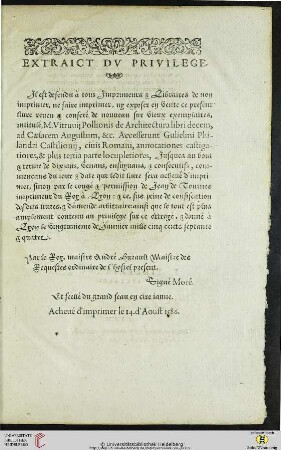 EXTRAICT DV PRIVILEGE.
Il est defendu à tous Imprimeurs & Libraires de non
imprimer, ne faire imprimer, ny exposer en vente ce present
liure reueu & conferé de nouueau sur vieux exemplaires,
intitulé, M. Vitruuij Pollionis de Architectura libri decem,
ad Cæsarem Augustum, &c. Accesserunt Gulielmi Phi-
landri Castilionij, ciuis Romani, annotationes castiga-
tiores, & plus tertia parte locupletiores, Iusques au bout
& terme de dix ans, venans, ensuyuans, & consecutifs, com-
mençans du iour & date que ledit liure sera acheué d'impri-
mer, sinon par le congé & permission de Iean de Tournes
imprimeur du Roy à Lyon: & ce, sur peine de confiscation
desdits liures, & d'amende arbitraire: ainsi que le tout est plus
amplement contenu au priuilege sur ce ottroyé, & donné à
Lyon le vingtneufieme de Ianuier mille cinq cents septante
& quatre.
Par le Roy, maistre André Hurault Maistre des
Requestes ordinaire de l'hostel present.
Signé Moré.
Et seellé du grand seau en cire iaune.
Acheué d'imprimer le 14. d'Aoust 1586.
UNIVERSITÄTS-
BIBLIOTHEK
HEIDELBERG
© Universitätsbibliothek Heidelberg